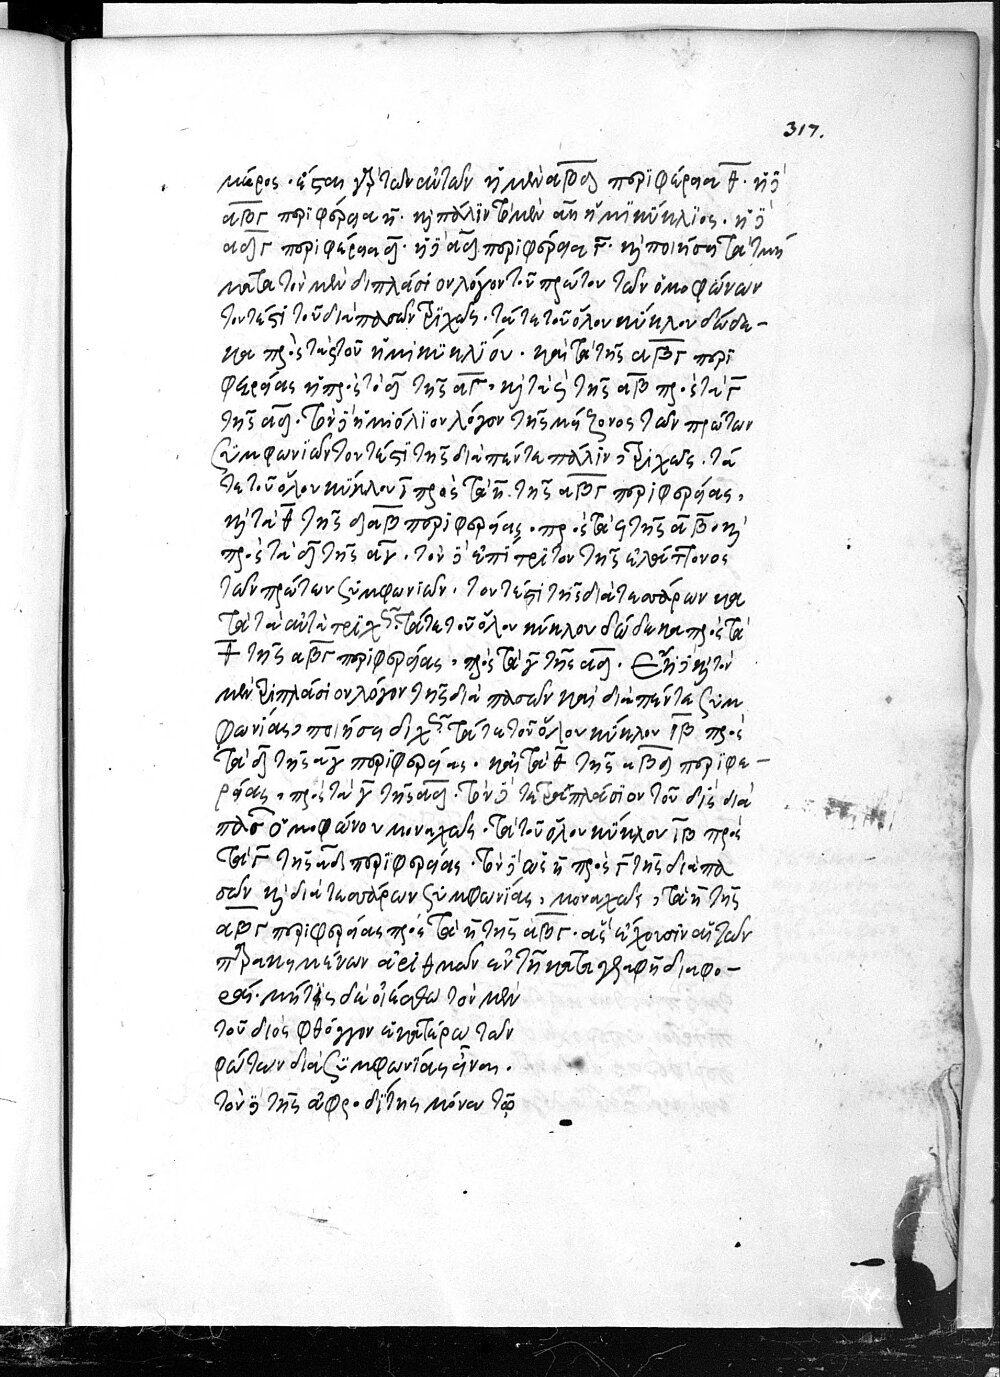 317.
μέρος · ἔσται γὰρ τῶν αὐτῶν ἡ μὲν αβδ περιφέρεια θ · ἡ δὲ
αβγ περιφέρεια η · καὶ πάλιν τὸ μὲν αη ἡμικύκλιος · ἡ δὲ
αδγ περιφέρεια δ · ἡ δὲ αδ περιφέρεια γ · καὶ ποιήσει τὰ
κατὰ τὸν μὲν διπλάσιον λόγον τοῦ πρώτου τῶν ὁμοφώνων
τουτέστι τοῦ διὰ πασῶν τριχῶς · τά τε τοῦ ὅλου κύκλου δώδε-
κα πρὸς τὰ τοῦ ἡμικυκλίου · καὶ τὰ τῆς αβγ περι
φερείας η πρὸς τὰ δ τῆς αγ · καὶ τὰ τῆς αβ πρὸς τὰ γ
τῆς αδ · τὸν δὲ ἡμιόλιον λόγον τῆς μείζονος τῶν πρώτων
συμφωνιῶν τουτέστι τῆς διὰ πέντε πάλιν τριχῶς · τά
τε τοῦ ὅλου κύκλου ιβ πρὸς τὰ η τῆς αβγ περιφερείας,
καὶ τὰ θ τῆς αβ περιφερείας · πρὸς τὰ ς τῆς αβ · καὶ
πρὸς τὰ δ τῆς αγ · τὸν δ' ἐπίτριτον τῆς ἐλάττονος
τῶν πρώτων συμφωνιῶν · τουτέστι τῆς διὰ τεσσάρων κα
τὰ τὰ αὐτὰ τριχῶς · τά τε τοῦ ὅλου κύκλου δώδεκα πρὸς τὰ
θ τῆς αβγ περιφερείας, πρὸς τὰ γ τῆς αδ · ἔτι δὲ καὶ τὸν
μὲν τριπλάσιον λόγον τῆς διὰ πασῶν καὶ διὰ πέντε συμ
φωνίας ποιήσει διχῶς · τά τε τοῦ ὅλου κύκλου ιβ πρὸς
τὰ δ τῆς αγ περιφερείας · καὶ τὰ θ τῆς αβδ περιφε-
ρείας, πρὸς τὰ γ τῆς αδ · τὸν δὲ τετραπλάσιον τοῦ δὶς διὰ
πασῶν ὁμοφώνου μοναχῶς · τὰ τοῦ ὅλου κύκλου ιβ πρὸς
τὰ γ τῆς αδ περιφερείας · τὸν δὲ ὡς η πρὸς γ τῆς διὰ πα
σῶν καὶ διὰ τεσσάρων συμφωνίας, μοναχῶς, τὰ η τῆς
αβγ περιφερείας πρὸς τὰ η τῆς αβγ · ἃς ἔχουσιν αἱ τῶν
παρακειμένων ἀριθμῶν ἐν τῇ καταγραφῇ διαφο-
ραί · μή τις δὲ οἰέσθω τὸν μὲν
τοῦ διὸς φθόγγον ἑκατέρῳ τῶν
φώτων διὰ συμφωνίας εἶναι ·
τὸν δὲ τῆς ἀφροδίτης μόνον τῷ